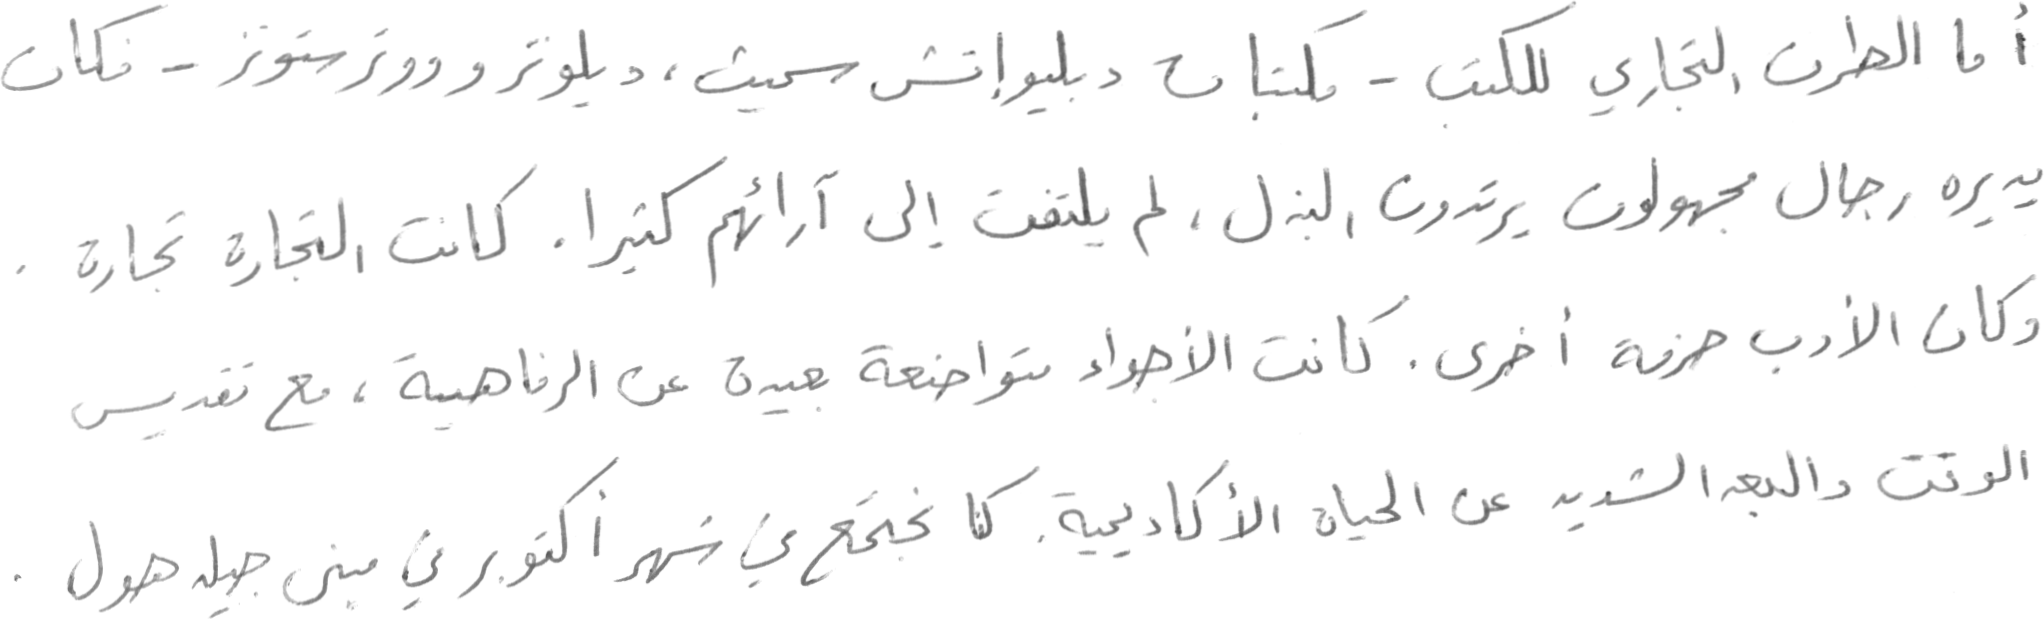 أما الطرف التجاري للكتب - مكتبات دبليو إتش سميث، ديلونز و ووترستونز - فكان
يديره رجال مجهولون يرتدون البذل، لم يلتفت إلى آرائهم كثيرا. كانت التجارة تجارة.
وكان الأدب حرفة أخرى. كانت الأجواء متواضعة بعيدة عن الرفاهية، مع تقديس
الوقت والبعد الشديد عن الحياة الأكاديمية. كنا نجتمع في شهر أكتوبر في مبنى جيلد هول.